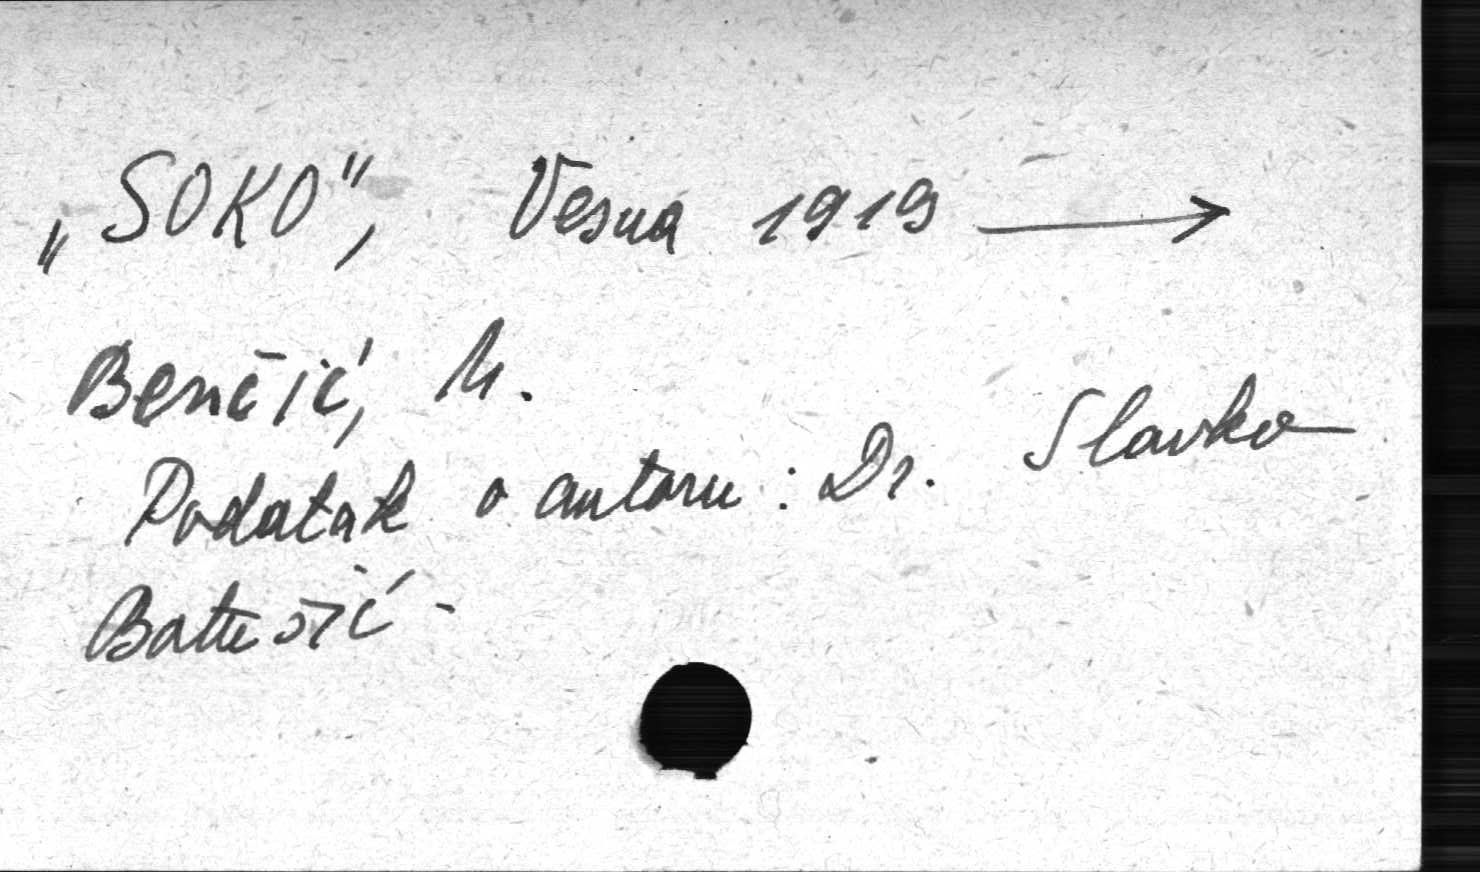 „SOKO", Vesna 1919 →
Benčić, M.
Podatak o autoru: Dr. Slavko
Batušić -